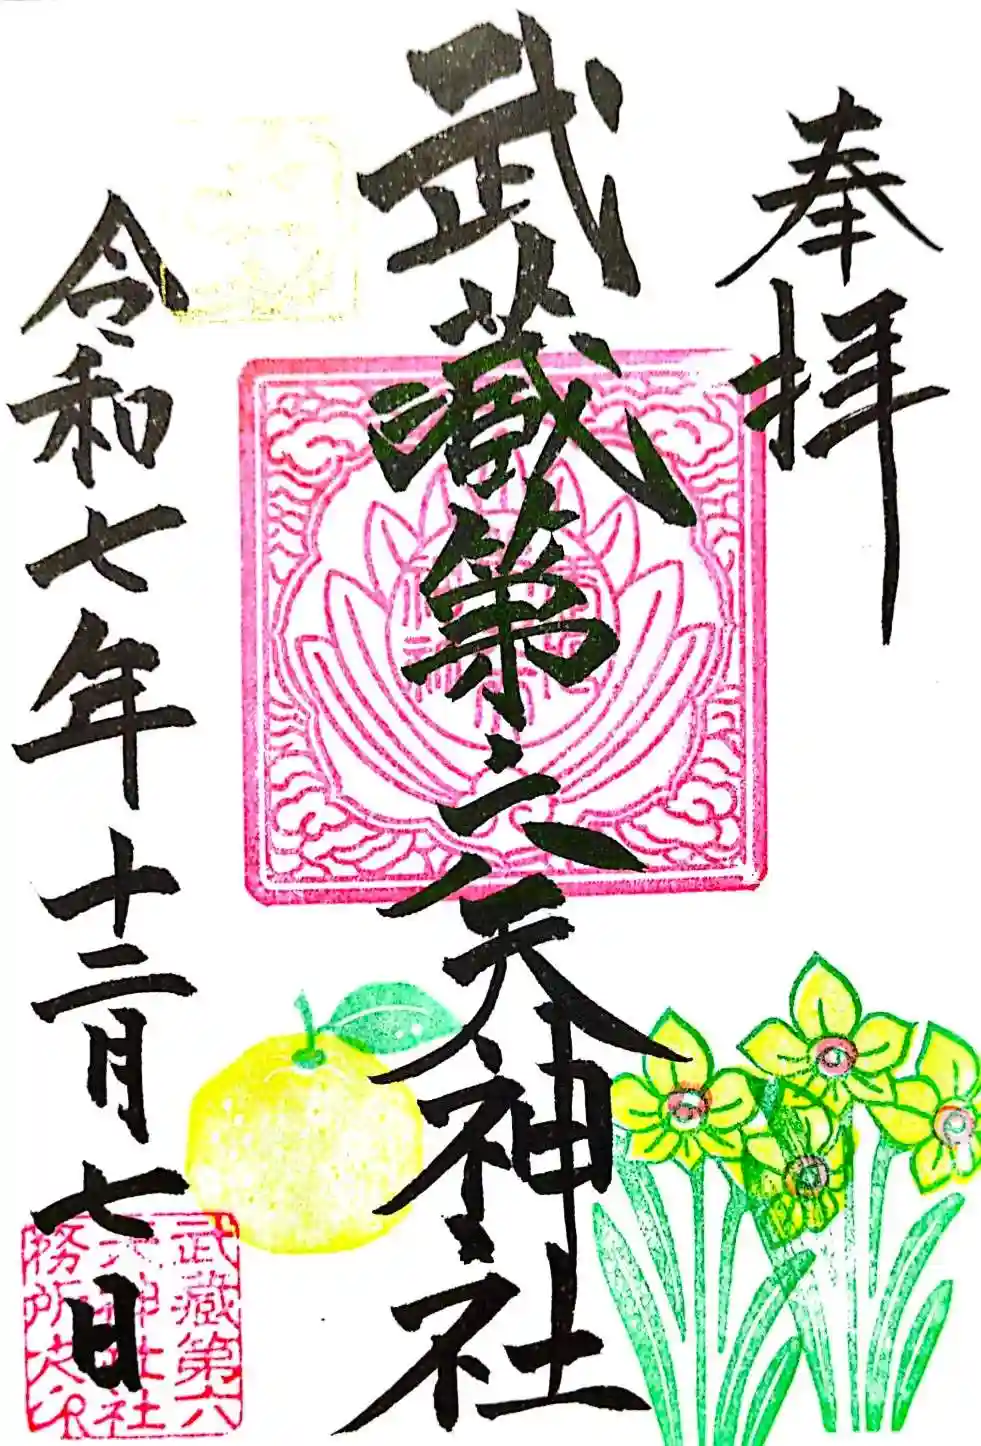 奉拝
武蔵第六天神社
令和七年十二月七日
武蔵第六
天神社社
務所之印